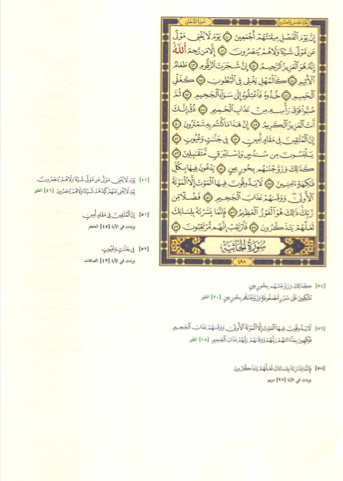 سورة الدخان
إِنَّ يَوْمَ ٱلْفَصْلِ مِيقَٰتُهُمْ أَجْمَعِينَ ٤٠ يَوْمَ لَا يُغْنِى مَوْلًى
عَن مَّوْلًى شَيْـًٔا وَلَا هُمْ يُنصَرُونَ ٤١ إِلَّا مَن رَّحِمَ ٱللَّهُ
إِنَّهُۥ هُوَ ٱلْعَزِيزُ ٱلرَّحِيمُ ٤٢ إِنَّ شَجَرَتَ ٱلزَّقُّومِ ٤٣ طَعَامُ
ٱلْأَثِيمِ ٤٤ كَٱلْمُهْلِ يَغْلِى فِى ٱلْبُطُونِ ٤٥ كَغَلْىِ
ٱلْحَمِيمِ ٤٦ خُذُوهُ فَٱعْتِلُوهُ إِلَىٰ سَوَآءِ ٱلْجَحِيمِ ٤٧ ثُمَّ
صُبُّوا۟ فَوْقَ رَأْسِهِۦ مِنْ عَذَابِ ٱلْحَمِيمِ ٤٨ ذُقْ إِنَّكَ
أَنتَ ٱلْعَزِيزُ ٱلْكَرِيمُ ٤٩ إِنَّ هَٰذَا مَا كُنتُم بِهِۦ تَمْتَرُونَ ٥٠
إِنَّ ٱلْمُتَّقِينَ فِى مَقَامٍ أَمِينٍ ٥١ فِى جَنَّٰتٍ وَعُيُونٍ ٥٢
يَلْبَسُونَ مِن سُندُسٍ وَإِسْتَبْرَقٍ مُّتَقَٰبِلِينَ ٥٣
كَذَٰلِكَ وَزَوَّجْنَٰهُم بِحُورٍ عِينٍ ٥٤ يَدْعُونَ فِيهَا بِكُلِّ
فَٰكِهَةٍ ءَامِنِينَ ٥٥ لَا يَذُوقُونَ فِيهَا ٱلْمَوْتَ إِلَّا ٱلْمَوْتَةَ
ٱلْأُولَىٰ وَوَقَىٰهُمْ عَذَابَ ٱلْجَحِيمِ ٥٦ فَضْلًا مِّن
رَّبِّكَ ذَٰلِكَ هُوَ ٱلْفَوْزُ ٱلْعَظِيمُ ٥٧ فَإِنَّمَا يَسَّرْنَٰهُ بِلِسَانِكَ
لَعَلَّهُمْ يَتَذَكَّرُونَ ٥٨ فَٱرْتَقِبْ إِنَّهُم مُّرْتَقِبُونَ ٥٩
سُورَةُ الجَاثِيَةِ
٤٩٨
[٤١] يَوْمَ لَا يُغْنِى مَوْلًى عَن مَّوْلًى شَيْـًٔا وَلَا هُمْ يُنصَرُونَ
يَوْمَ لَا يُغْنِى عَنْهُمْ كَيْدُهُمْ شَيْـًٔا وَلَا هُمْ يُنصَرُونَ [٤٦] الطور
[٥١] إِنَّ ٱلْمُتَّقِينَ فِى مَقَامٍ أَمِينٍ
[٥٢] فِى جَنَّٰتٍ وَعُيُونٍ
[٥٤] كَذَٰلِكَ وَزَوَّجْنَٰهُم بِحُورٍ عِينٍ
مُتَّكِـِٔينَ عَلَىٰ سُرُرٍ مَّصْفُوفَةٍ وَزَوَّجْنَٰهُم بِحُورٍ عِينٍ [٢٠] الطور
[٥٦] لَا يَذُوقُونَ فِيهَا ٱلْمَوْتَ إِلَّا ٱلْمَوْتَةَ ٱلْأُولَىٰ وَوَقَىٰهُمْ عَذَابَ ٱلْجَحِيمِ
فَٰكِهِينَ بِمَآ ءَاتَىٰهُمْ رَبُّهُمْ وَوَقَىٰهُمْ رَبُّهُمْ عَذَابَ ٱلْجَحِيمِ [١٨] الطور
[٥٨] فَإِنَّمَا يَسَّرْنَٰهُ بِلِسَانِكَ لَعَلَّهُمْ يَتَذَكَّرُونَ
وردت في الآية [٩٧] مريم